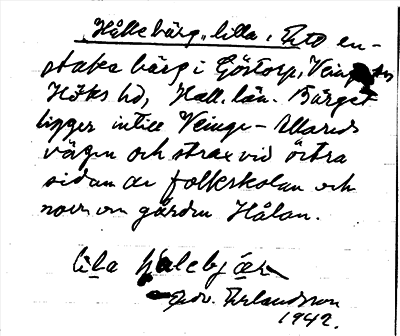 "Hålleberg," lilla. Ett en-
staka bärg i Göstorp, Veinge sn
Höks hd, Hall. län. Bärget
ligger intill Veinge - Ullareds
vägen och strax vid östra
sidan av folkskolan och
norr om gården Hålan.
lila
Edv. Erlandsson
1942.